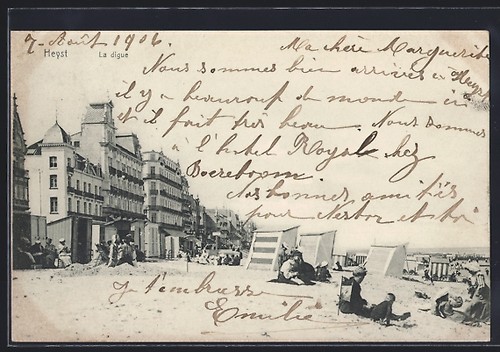 7 Août 1906
Heyst La digue
Ma chère Marguerite
Nous sommes bien arrivés à Heyst
il y a beaucoup de monde ici
et il fait très beau. Nous sommes
à l'hôtel Royal chez
Boereboom.
Nos bonnes amitiés
pour Nestor et toi
Je t'embrasse
Emilie